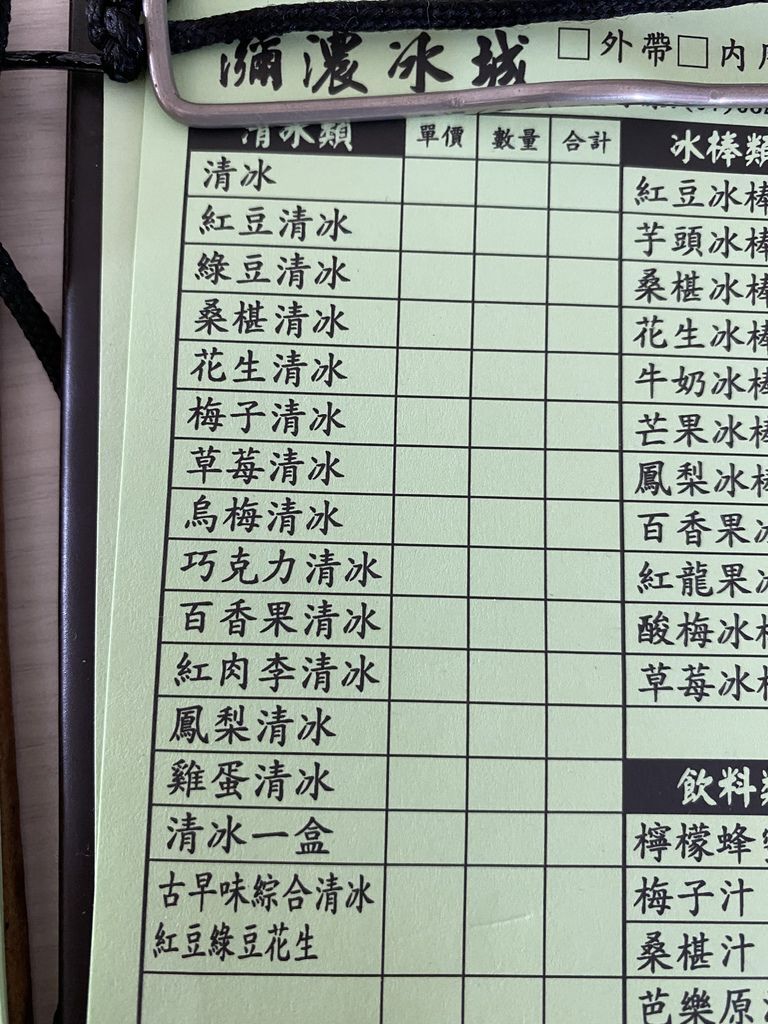 彌濃冰城 □外帶□內
清冰類 單價 數量 合計 冰棒類
清冰 紅豆冰棒
紅豆清冰 芋頭冰棒
綠豆清冰 桑椹冰棒
桑椹清冰 花生冰棒
花生清冰 牛奶冰棒
梅子清冰 芒果冰棒
草莓清冰 鳳梨冰棒
烏梅清冰 百香果冰
巧克力清冰 紅龍果冰
百香果清冰 酸梅冰棒
紅肉李清冰 草莓冰棒
鳳梨清冰
雞蛋清冰 飲料類
清冰一盒 檸檬蜂蜜
古早味綜合清冰 梅子汁
紅豆綠豆花生 桑椹汁
芭樂原